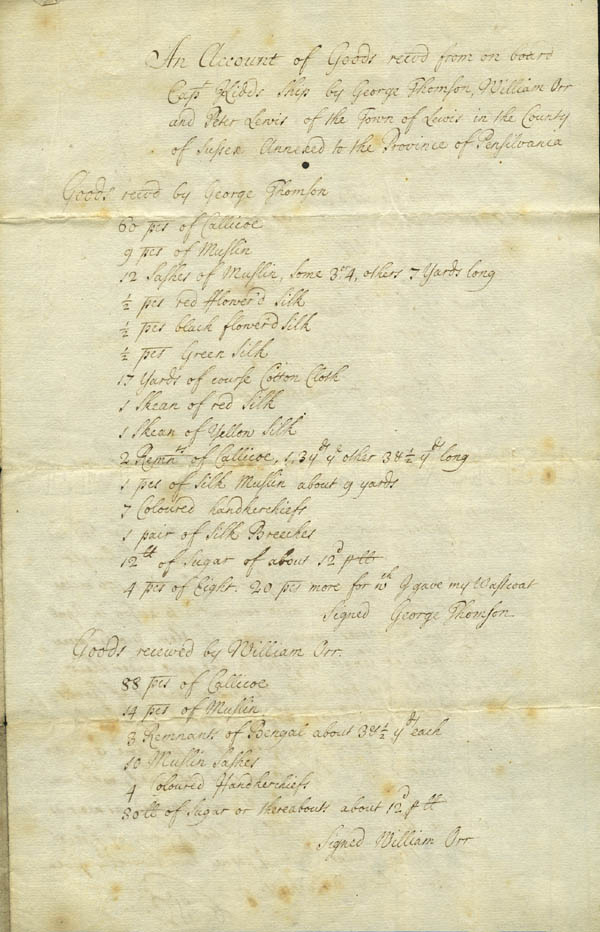 An Account of Goods recvd from on board
Capt Kidds Ship by George Thomson, William Orr
and Peter Lewis of the Town of Lewis in the County
of Sussex Annexed to the Province of Pensilvania
Goods recvd by George Thomson
60 pes of Callicoe
9 pes of Muslin
12 Sashes of Muslin, some 3 or 4, others 7 Yards long
½ pes red fflower'd Silk
½ pes black flower'd Silk
½ pes Green Silk
17 Yards of course Cotton Cloth
1 Skean of red Silk
1 Skean of Yellow Silk
2 Remnts of Callicoe, 1, 3 yds ye other 3 yds long
1 pes of Silk Muslin about 9 yards
7 Coloured handkerchiefs
1 pair of Silk Breeches
12 tt of Sugar of about 12d p tt
4 pes of Eight. 20 pes more for wch I gave my Wastcoat
Signed George Thomson
Goods received by William Orr.
88 pes of Callicoe
14 pes of Muslin
3 Remnants of Bengal about yds each
10 Muslin Sashes
4 Coloured Handkerchiefs
80 tt of Sugar or thereabouts about 12d p tt
Signed William Orr